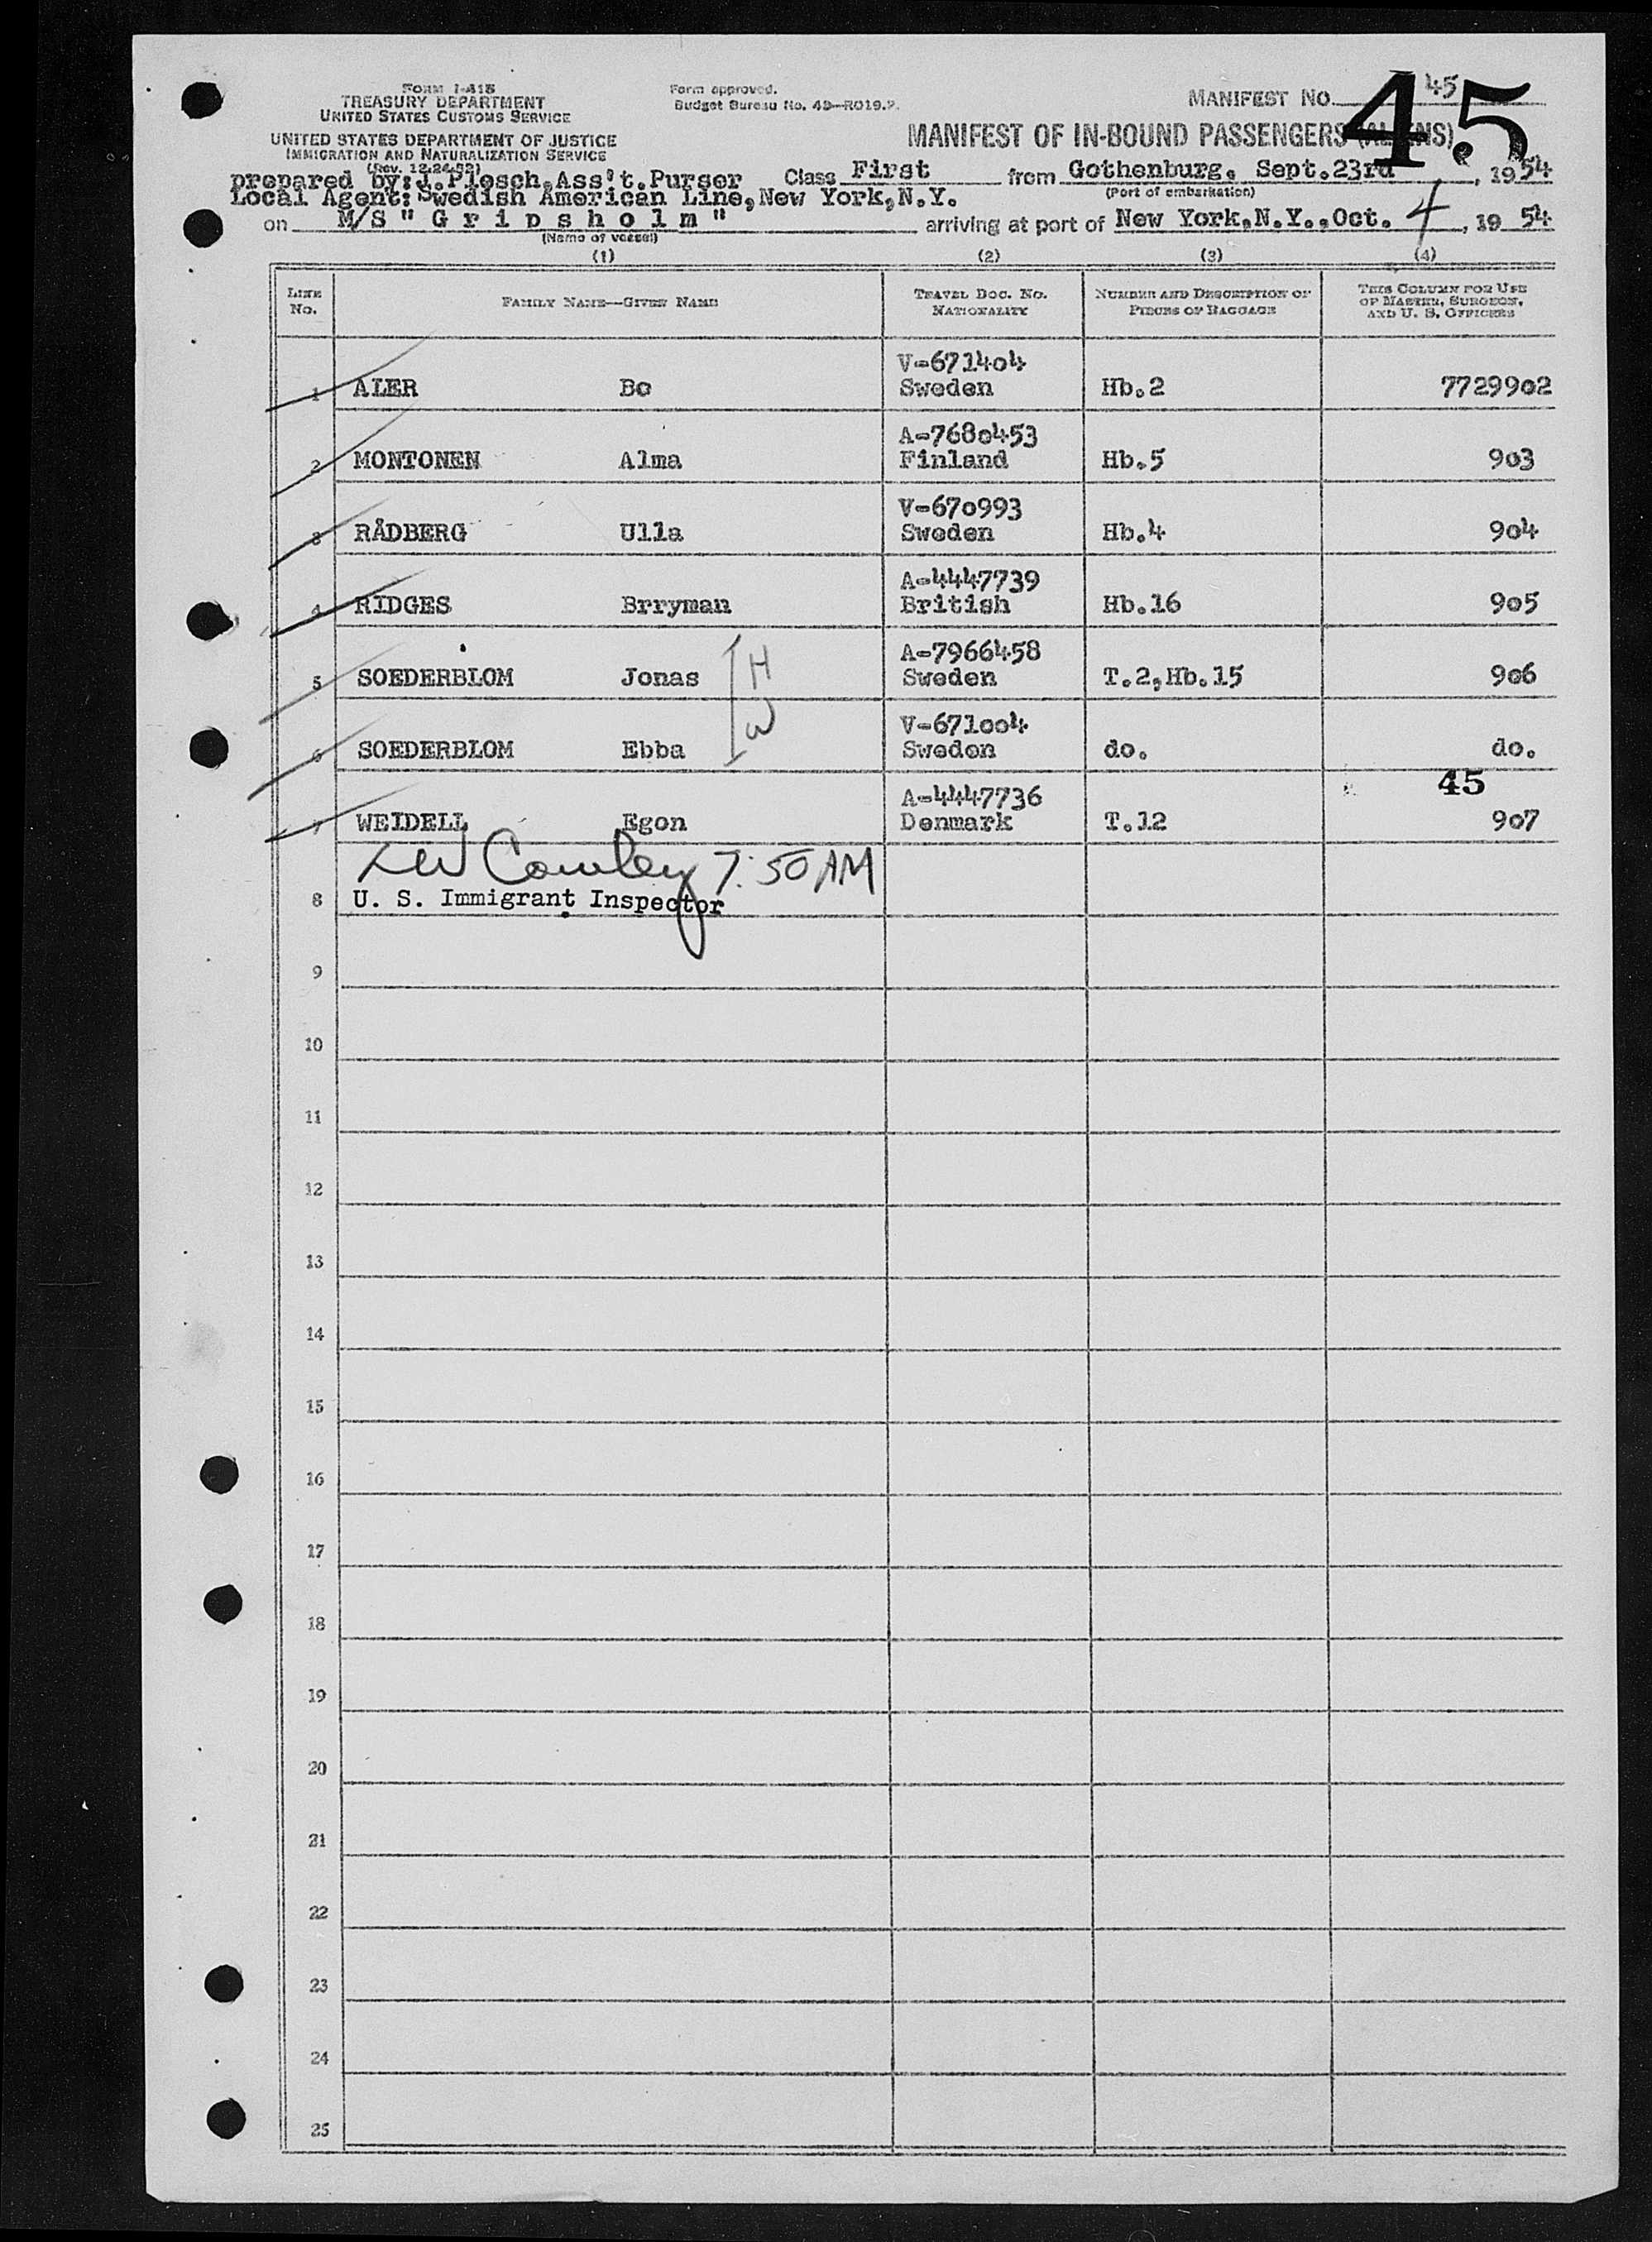 FORM I-415
TREASURY DEPARTMENT
UNITED STATES CUSTOMS SERVICE
UNITED STATES DEPARTMENT OF JUSTICE
IMMIGRATION AND NATURALIZATION SERVICE
(Rev. 12-24-52)
Form approved.
Budget Bureau No. 43-R019.2.
MANIFEST NO. 45
45
MANIFEST OF IN-BOUND PASSENGERS (ALIENS)
prepared by: J. Plesch, Ass't. Purser Class First from Gothenburg, Sept. 23rd, 1954
Local Agent: Swedish American Line, New York, N.Y. (Port of embarkation)
on M/S " G r i p s h o l m " arriving at port of New York, N.Y., Oct. 4, 19 54
(Name of vessel)
(1) (2) (3) (4)
LINE NO. FAMILY NAME—GIVEN NAME TRAVEL DOC. NO. NATIONALITY NUMBER AND DESCRIPTION OF PIECES OF BAGGAGE THIS COLUMN FOR USE OF MASTER, SURGEON, AND U. S. OFFICERS
V-671404
1 ALER Bo Sweden Hb.2 7729902
A-7680453
2 MONTONEN Alma Finland Hb.5 903
V-670993
3 RÅDBERG Ulla Sweden Hb.4 904
A-4447739
4 RIDGES Brryman British Hb.16 905
A-7966458
5 SOEDERBLOM Jonas H Sweden T.2,Hb.15 906
V-671004
6 SOEDERBLOM Ebba W Sweden do. do.
45
A-4447736
7 WEIDELL Egon Denmark T.12 907
Cowley 7:50 AM
8 U. S. Immigrant Inspector
9
10
11
12
13
14
15
16
17
18
19
20
21
22
23
24
25